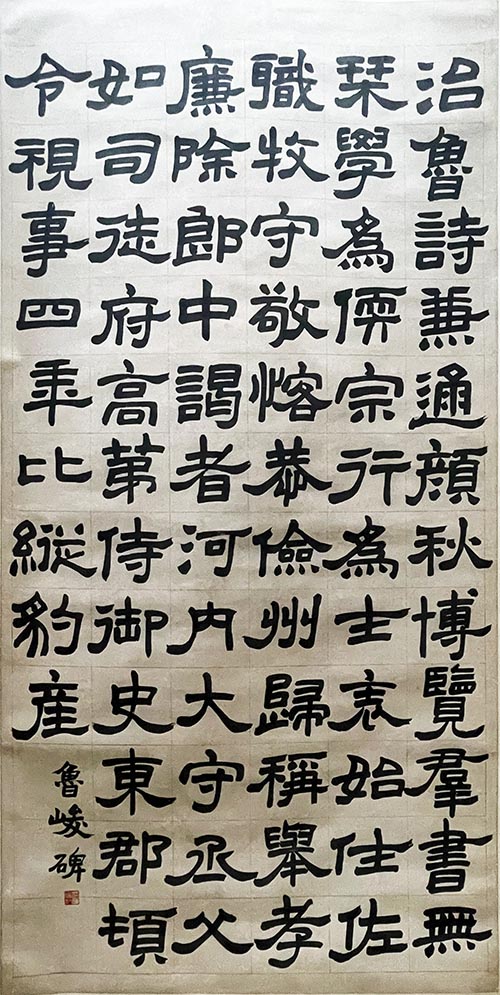 治魯詩兼通顔秋博覽羣書無
栞學為儒宗行為士表始仕佐
職牧守敬愘恭儉州歸稱舉孝
廉除郎中謁者河内大守丞父
如司徒府高第侍御史東郡頓
令視事四年比縱豹産
魯峻碑